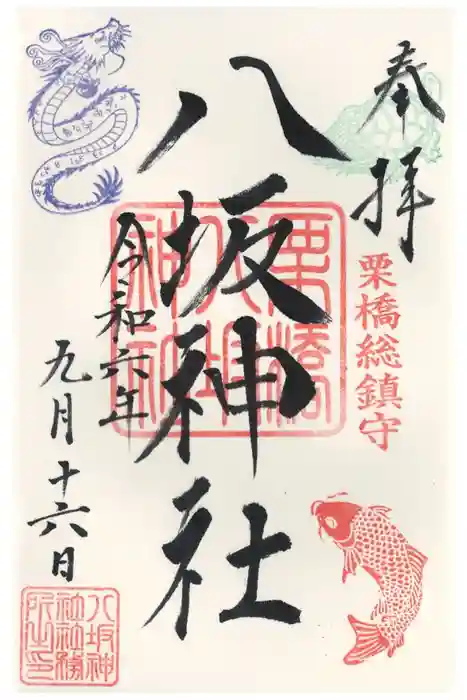 奉拝
栗橋総鎮守
八坂神社
令和六年
九月十六日
栗橋八坂神社
八坂神社社務所之印